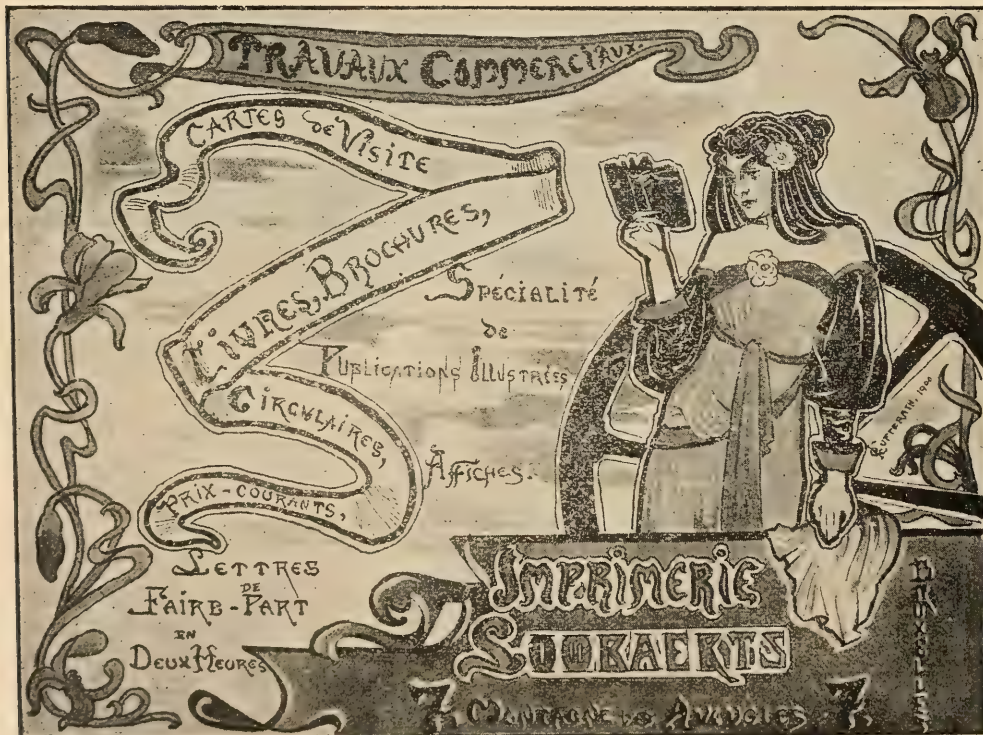 TRAVAUX COMMERCIAUX.
CARTES de VISITE
LIVRES, BROCHURES,
CIRCULAIRES,
PRIX-COURANTS,
SPÉCIALITÉ
de
PUBLICATIONS ILLUSTRÉES
AFFICHES.
LETTRES
DE
FAIRE-PART
EN
DEUX HEURES
1900
IMPRIMERIE
7. MONTAGNE DES AVEUGLES 7.
BRUXELLES